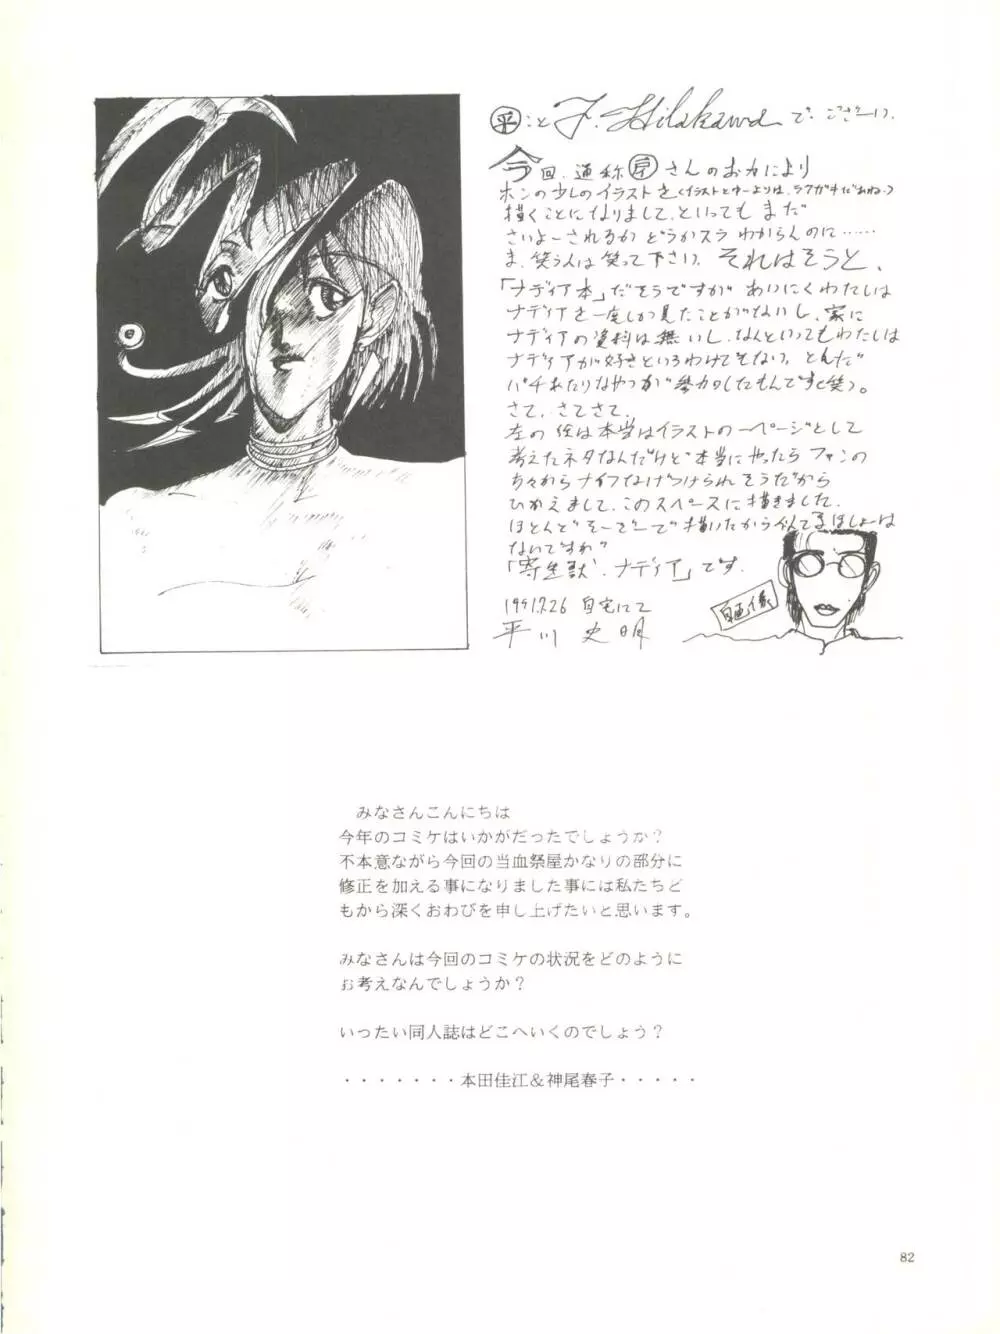 ㊥こと F. Hilakawa で ございい.
今回、通称 さんのお力により
ホンの少しのイラストを(イラストとゆーよりは、ラクガキだあね。)
描くことになりまして、といっても まだ
さいよーされるか どうかスラ わからんのに……
ま、笑う人は笑って下さい。それはそうと、
「ナディア本」だそうですが あいにくわたしは
ナディアを一度しか見たことがないし、家に
ナディアの資料は無いし、なんといってもわたしは
ナディアが好きというわけでもない。とんだ
バチあたりなやつが参加したもんです(笑)。
さて、さてさて、
左の絵は本当はイラストの一ページとして
考えたネタなんだけど本当にやったら ファンの
方々から ナイフなげつけられそうだから
ひかえまして、このスペースに描きました。
ほとんどそーぞーで描いたから似てるほしょーは
ないですわ"
「寄生獣・ナディア」です.
1991.7.26 自宅にて
平川 史明
自画像
みなさんこんにちは
今年のコミケはいかがだったでしょうか?
不本意ながら今回の当血祭屋かなりの部分に
修正を加える事になりました事には私たちど
もから深くおわびを申し上げたいと思います。
みなさんは今回のコミケの状況をどのように
お考えなんでしょうか?
いったい同人誌はどこへいくのでしょう?
・・・・・・・本田佳江&神尾春子・・・・・
82